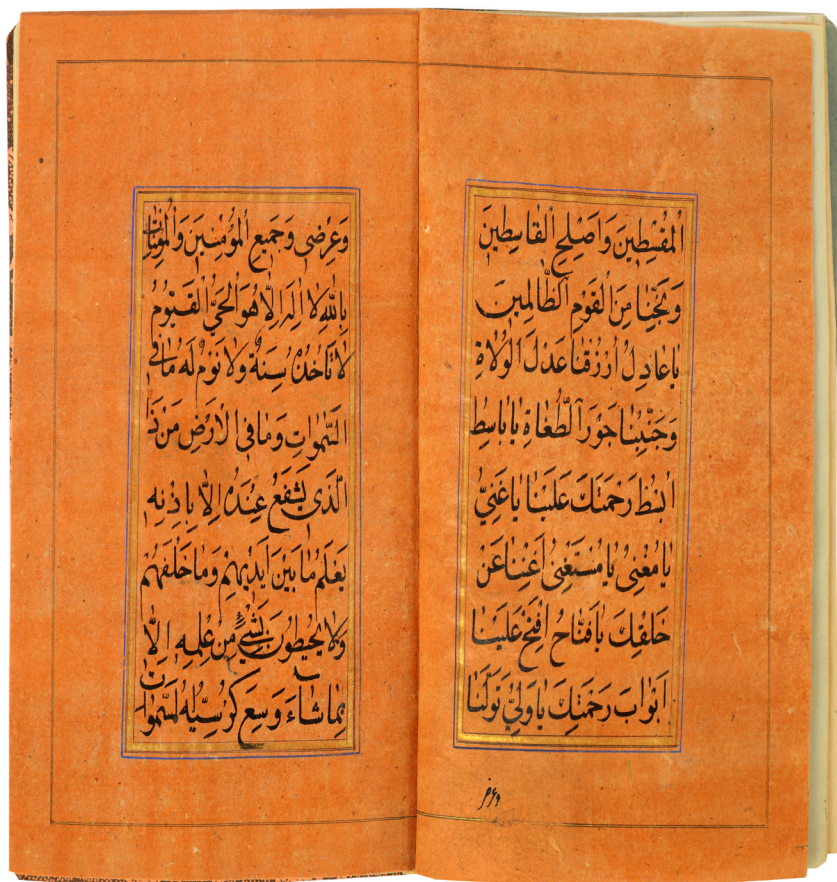 المُقْسِطِينَ وَاَصْلِحِ القَاسِطِينَ
وَنَجِّنَا مِنَ القَوْمِ الظَّالِمِينَ
يَا عَادِلُ اُرْزُقْنَا عَدْلَ الوُلَاةِ
وَجَنِّبْنَا جَوْرَ الطُّغَاةِ يَا بَاسِطُ
ابْسُطْ رَحْمَتَكَ عَلَيْنَا يَا غَنِيُّ
يَا مُغْنِىُ يَا مُسْتَغْنِىُ اَغْنِنَا عَنْ
خَلْقِكَ يَا فَتَّاحُ افْتَحْ عَلَيْنَا
اَبْوَابَ رَحْمَتِكَ يَا وَلِيُّ تَوَلَّنَا
وعرض
وَعِرْضِى وَجَمِيعِ المُؤْمِنِينَ وَالمُؤْمِنَاتِ
بِاللّٰهِ لَا اِلٰهَ اِلَّا هُوَ الحَيُّ القَيُّومُ
لَا تَاْخُذُهُ سِنَةٌ وَلَا نَوْمٌ لَهُ مَا فِى
السَّمٰوَاتِ وَمَا فِى الاَرْضِ مَنْ ذَا
الَّذِى يَشْفَعُ عِنْدَهُ اِلَّا بِاِذْنِهِ
يَعْلَمُ مَا بَيْنَ اَيْدِيهِمْ وَمَا خَلْفَهُمْ
وَلَا يُحِيطُونَ بِشَيْءٍ مِنْ عِلْمِهِ اِلَّا
بِمَا شَاءَ وَسِعَ كُرْسِيُّهُ السَّمٰوَاتِ